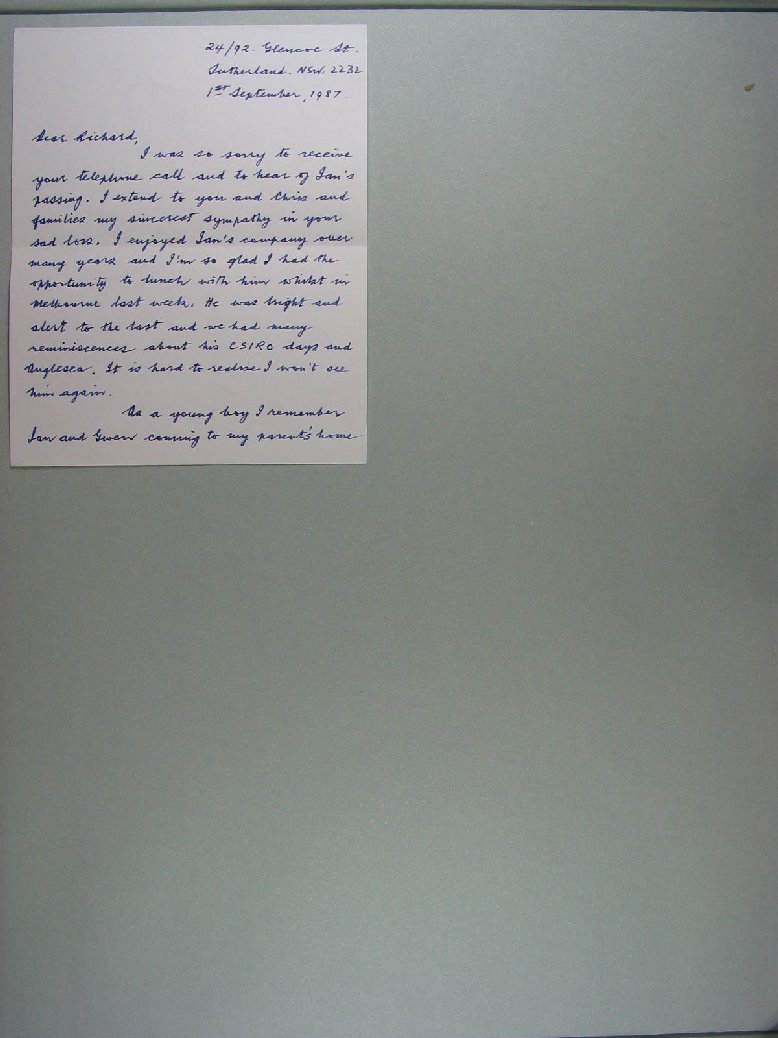 24/92 Glencoe St.
Sutherland. NSW. 2232
1st September, 1987.
Dear Richard,
I was so sorry to receive
your telephone call and to hear of Ian's
passing. I extend to you and Chris and
families my sincerest sympathy in your
sad loss. I enjoyed Ian's company over
many years and I'm so glad I had the
opportunity to lunch with him whilst in
Melbourne last week. He was bright and
alert to the last and we had many
reminiscences about his CSIRO days and
Anglesea. It is hard to realise I won't see
him again.
As a young boy I remember
Ian and Gwen coming to my parent's home